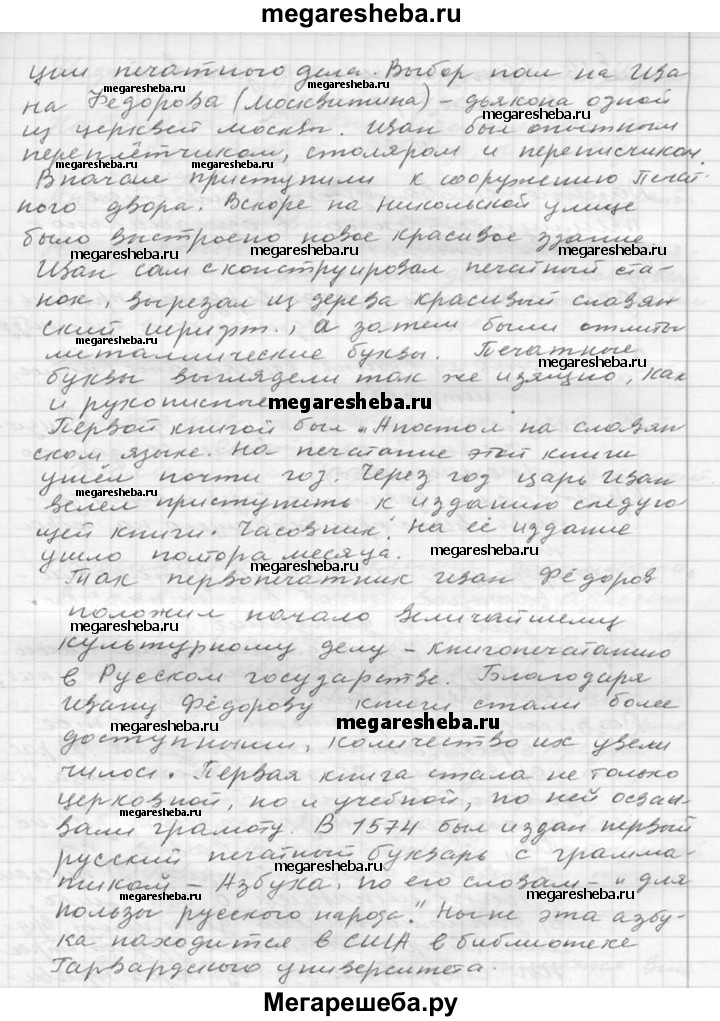 megaresheba.ru
ции печатного дела. Выбор пал на Ива
на Федорова (Москвитина) – дьякона одной
megaresheba.ru
из церквей Москвы. Иван был опытным
megaresheba.ru
переплётчиком, столяром и переписчиком.
Вначале приступили к сооружению Печат
ного двора. Вскоре на Никольской улице
было выстроено новое красивое здание.
megaresheba.ru megaresheba.ru
Иван сам сконструировал печатный ста-
нок, вырезал из дерева красивый славян
megaresheba.ru
ский шрифт, а затем были отлиты
megaresheba.ru
металлические буквы. Печатные
буквы выглядели так же изящно, как
и рукописные
megaresheba.ru
Первой книгой был „Апостол на славян
ском языке. На печатание этой книги
ушёл почти год. Через год царь Иван
megaresheba.ru
велел приступить к изданию следую
щей книги. Часовник. На её издание
ушло полтора месяца.
megaresheba.ru
Так первопечатник Иван Фёдоров
положил начало величайшему
megaresheba.ru
культурному делу – книгопечатанию
в Русском государстве. Благодаря
Ивану Фёдорову книги стали более
megaresheba.ru megaresheba.ru
доступными, количество их увели
чилось. Первая книга стала не только
церковной, но и учебной, по ней осваи-
вали грамоту. В 1574 был издан первый
русский печатный букварь с грамма-
megaresheba.ru
тикой – Азбука, по его словам – „для
megaresheba.ru
пользы русского народа". Ныне эта азбу-
ка находится в США в библиотеке
Гарвардского университета.
Мегарешеба.ру